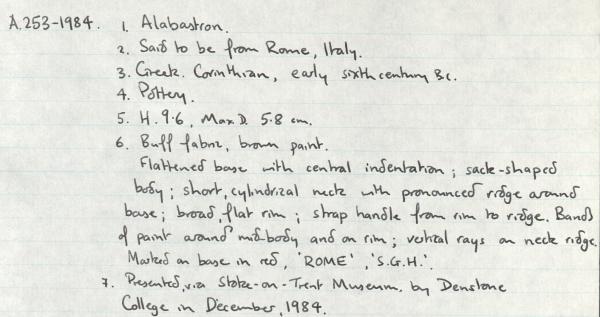 A.253-1984. 1. Alabastron.
2. Said to be from Rome, Italy.
3. Greek. Corinthian, early sixth century BC.
4. Pottery.
5. H. 9·6, Max D. 5·8 cm.
6. Buff fabric, brown paint.
Flattened base with central indentation; sack-shaped
body; short, cylindrical neck with pronounced ridge around
base; broad, flat rim; strap handle from rim to ridge. Bands
of paint around mid-body and on rim; vertical rays on neck ridge.
Marked on base in red, 'ROME', 'S.G.H.'.
7. Presented, via Stoke-on-Trent Museum, by Denstone
College in December, 1984.